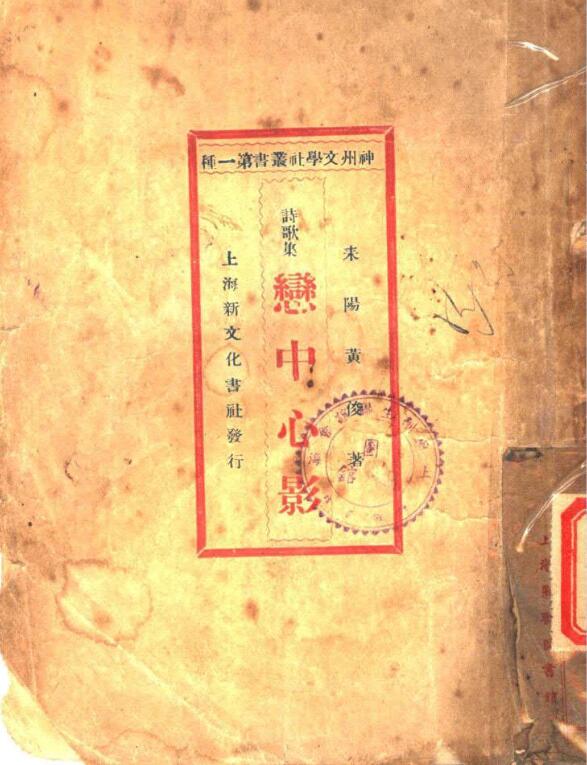 神州文學社叢書第一種
耒陽黃俊著
詩歌集
戀中心影
上海新文化書社發行